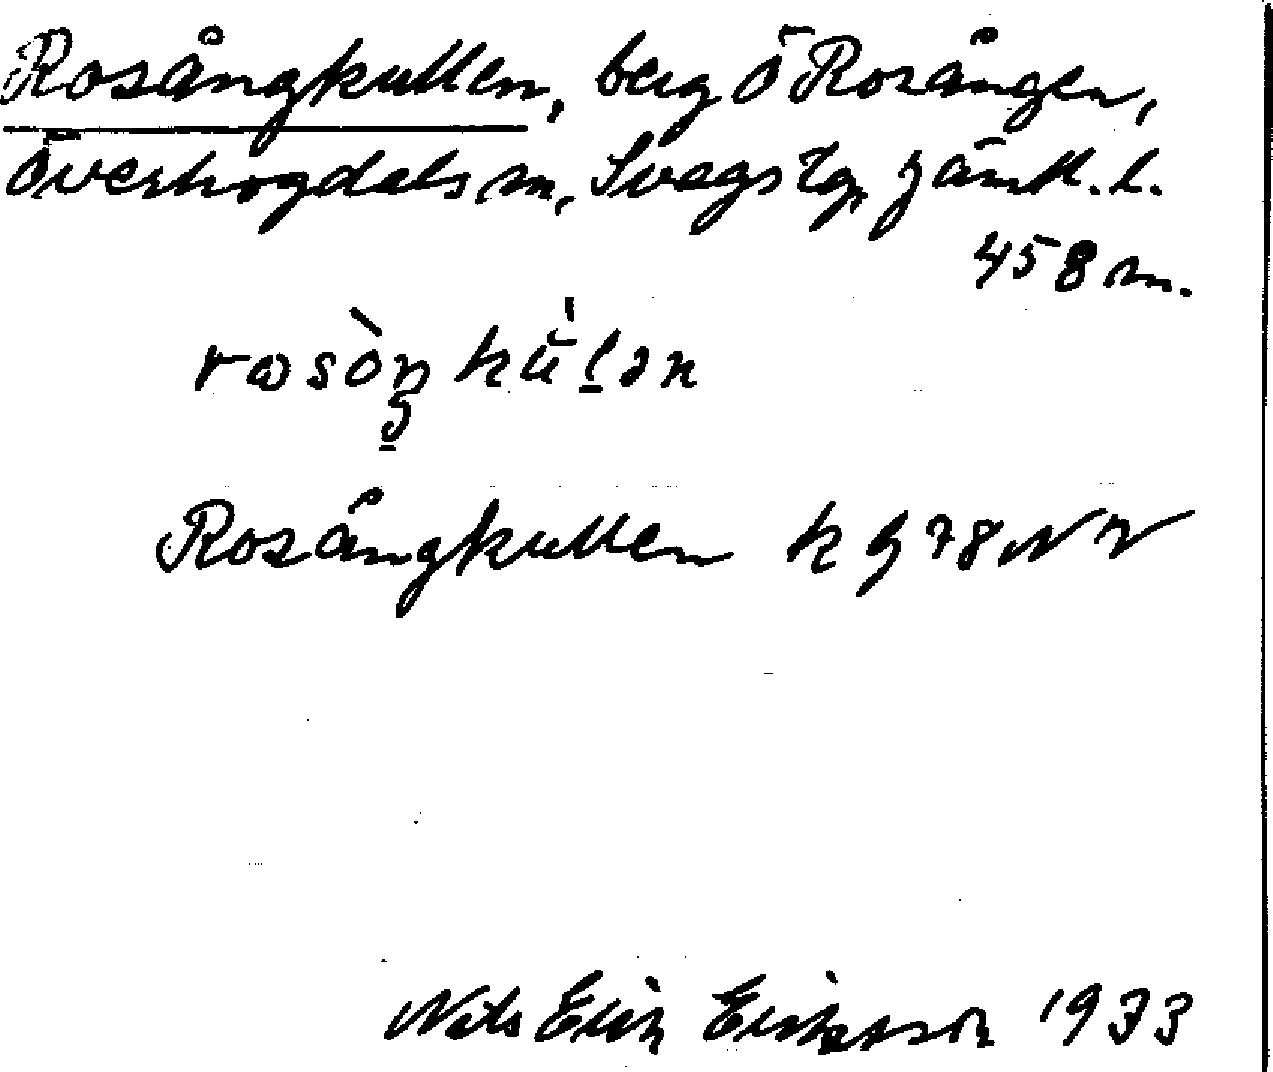 Rosångkullen, berg Ö Rosången,
Överhogdals sn, Svegs tg, Jämtl. l.
458 m.
Rosångkullen k g 78 NV
Nils Erik Eriksson 1933